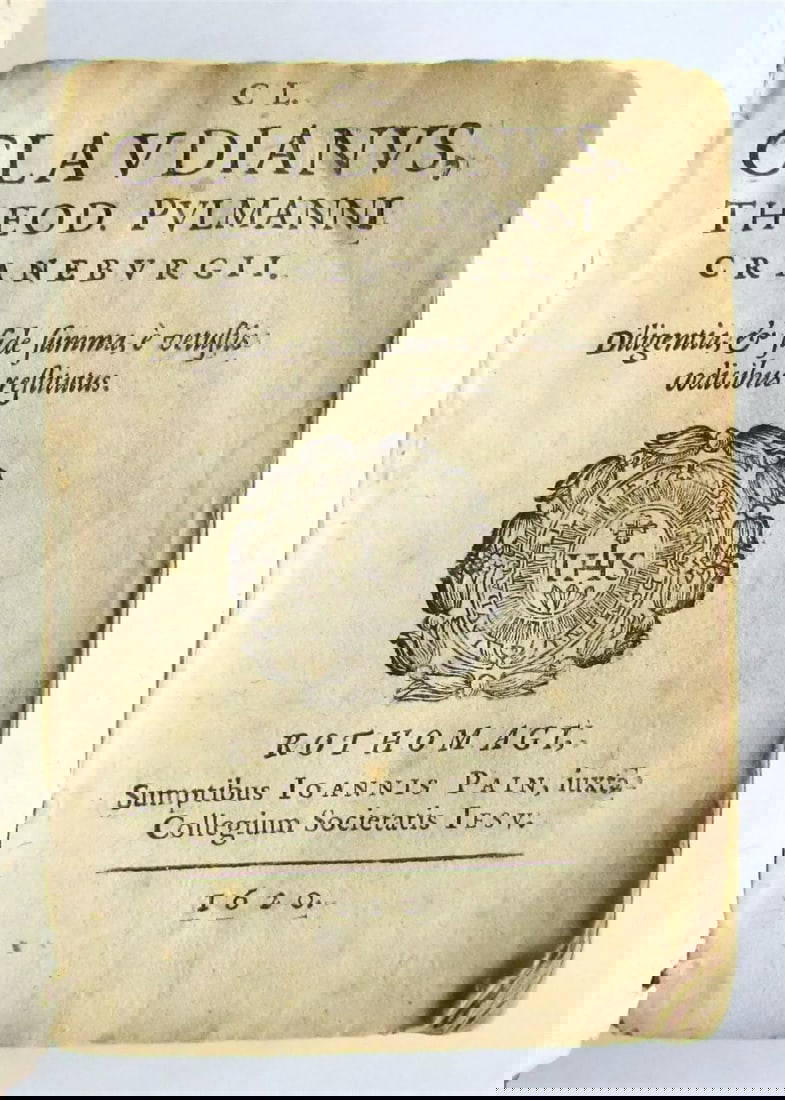 CL.
CLAVDIANVS,
THEOD. PVLMANNI
CRANEBVRGII.
Diligentia, & fide ſumma, è vetuſtis
codicibus reſtitutus.
IHS
ROTHOMAGI,
Sumptibus IOANNIS PAIN, iuxta
Collegium Societatis IESV.
1620.